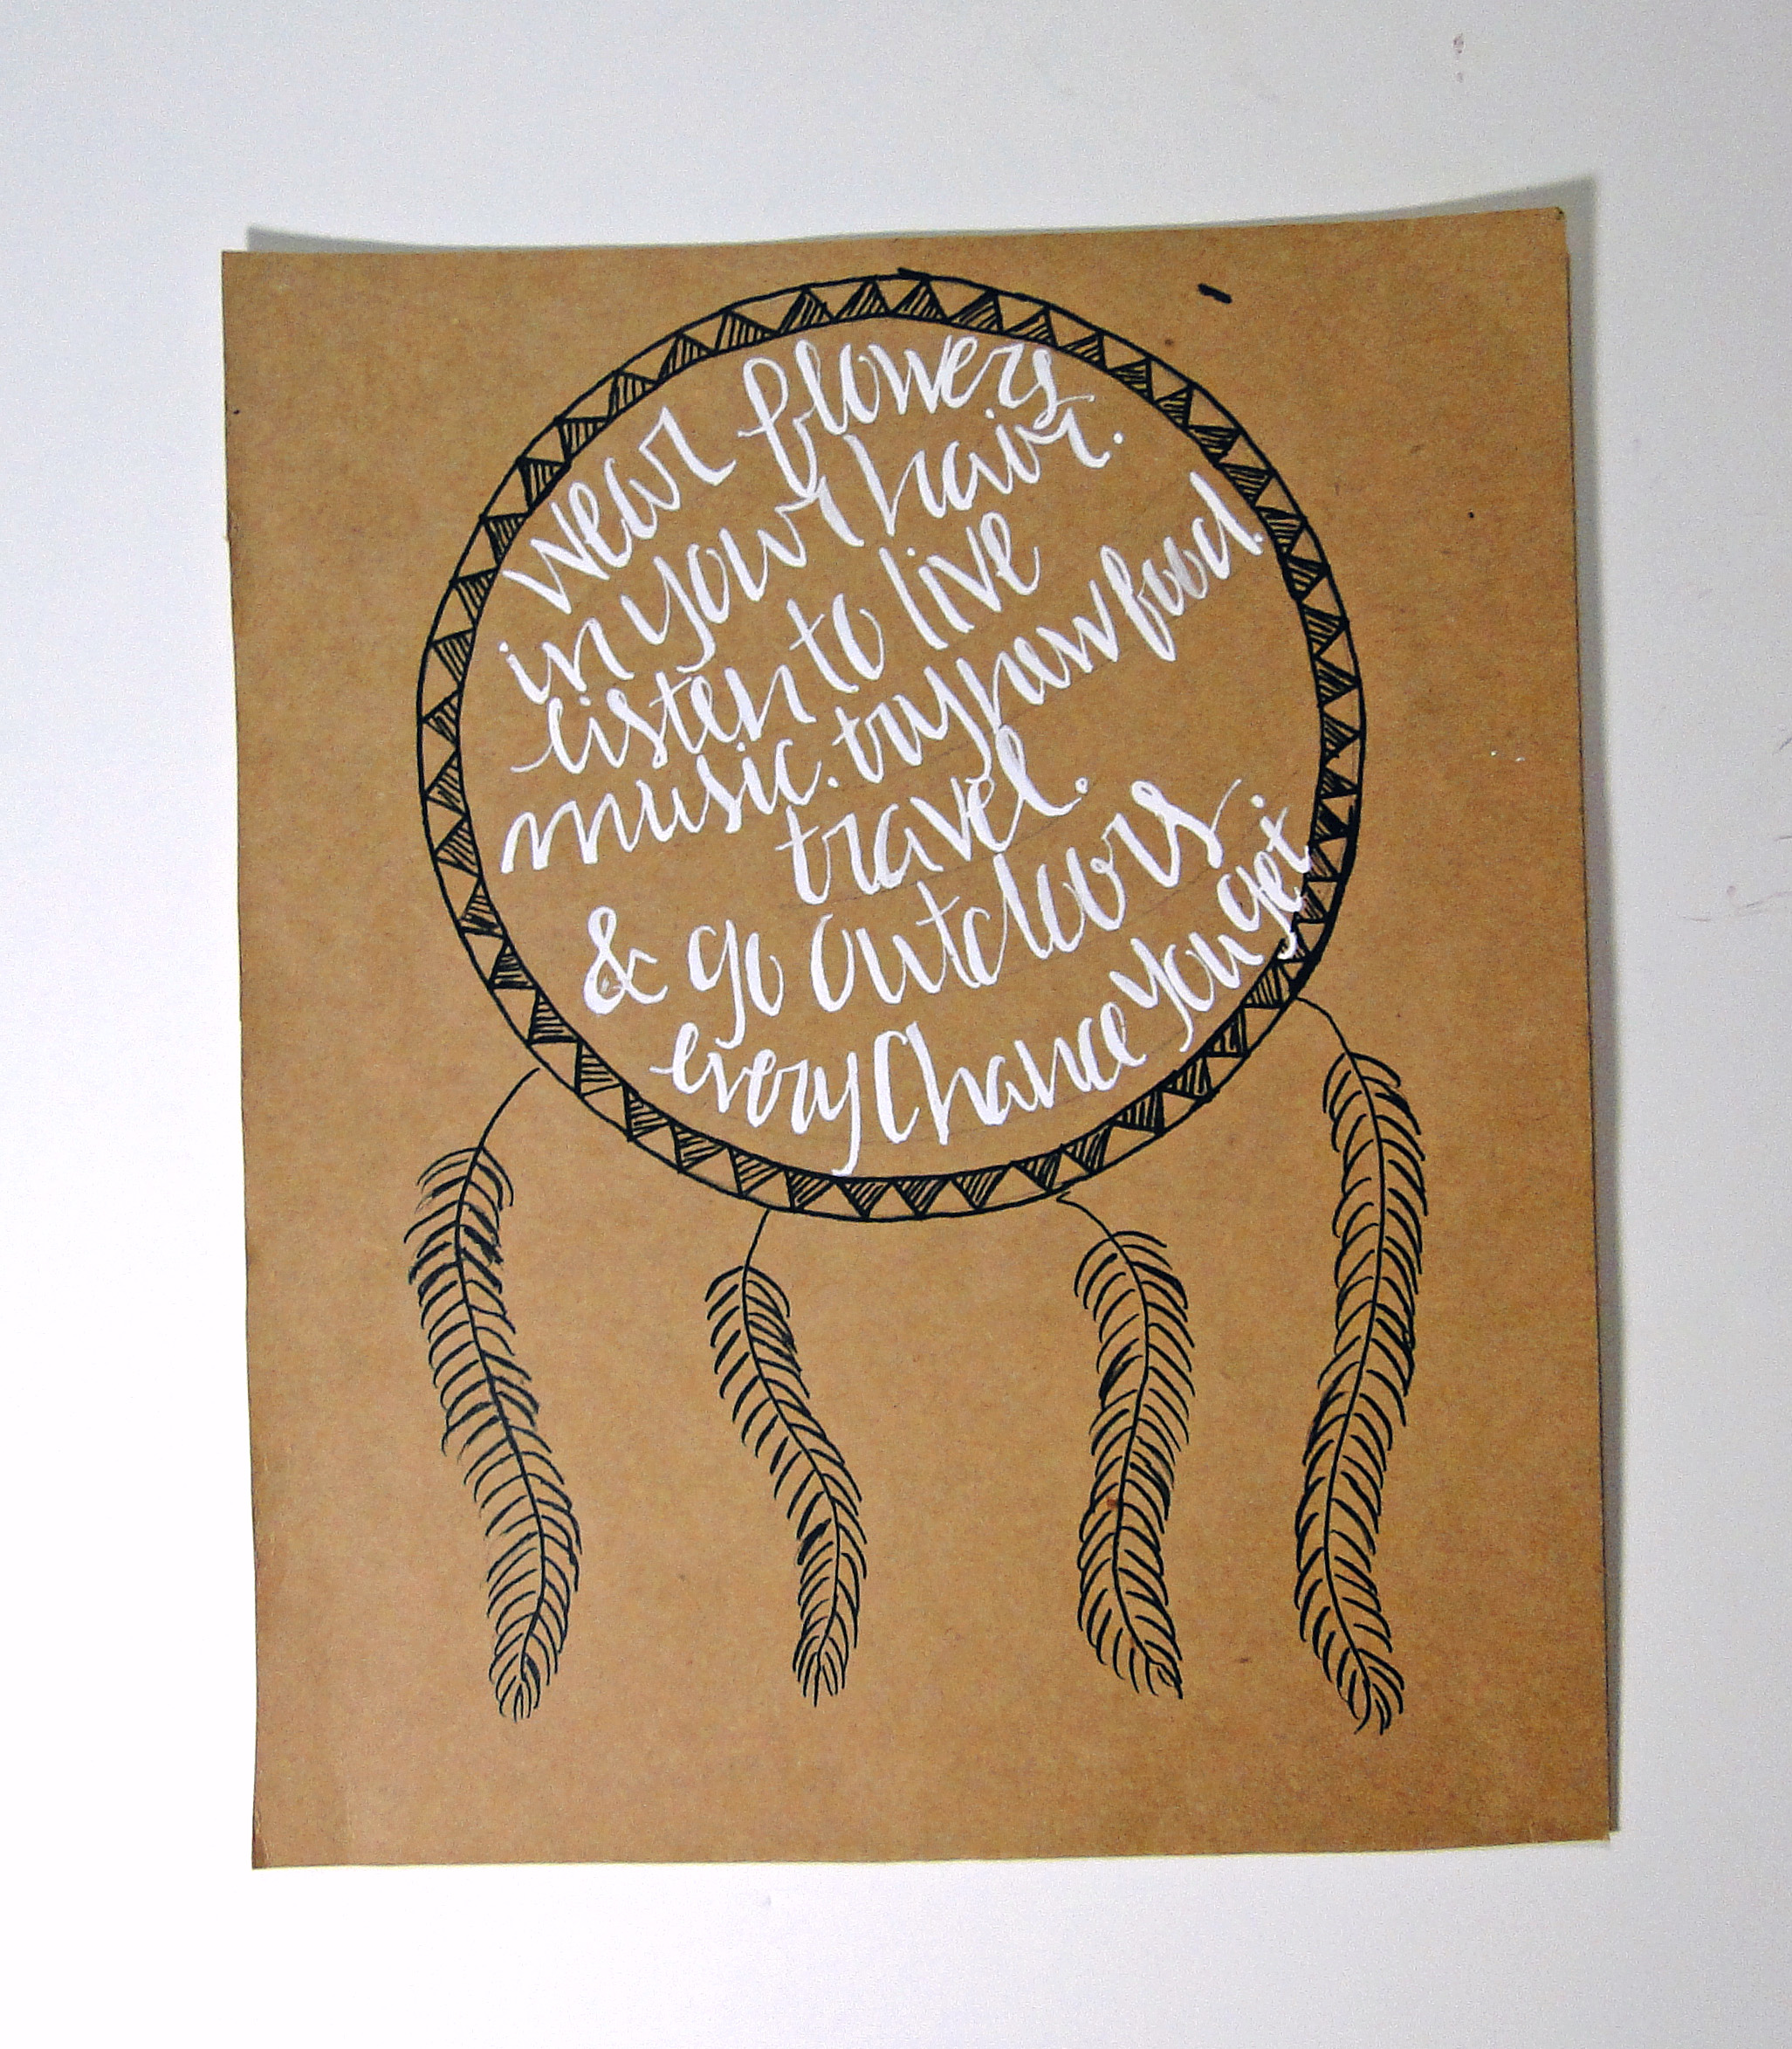 wear flowers
in your hair.
listen to live
music. try new food.
travel.
& go outdoors
every Chance you get.